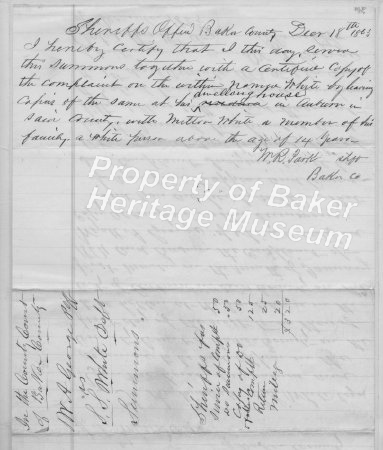 Sheriffs Office Baker County Decr 18th 1863
I hereby Certify that I this day served
this Summons together with a Certified Copy of
the Complaint on the within named White by leaving
Copies of the Same at his dwelling house in Auburn in
Said County with Milton White a member of his
family, a white person above the age of 14 years
W. R. Park Shff
Baker Co
Property of Baker
Heritage Museum
In the County Court
of Baker County
W. A. George Plff
vs
S. S. White Deft
Summons
Sheriffs fees
Service of Compl 50
do Summons 50
Copy of do 50
Compl 1 25
Return 25
Mileage 20
$3 20